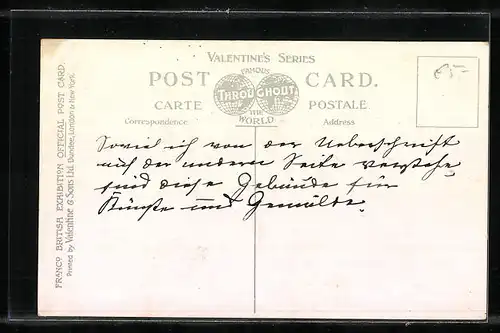 VALENTINE'S SERIES
FAMOUS
POST CARD.
THROUGHOUT
CARTE POSTALE
THE
WORLD
Correspondence Address
65-
Soviel ich von der Ueberschrift
auf der anderen Seite verstehe,
sind diese Gebäude für
Künste und Gemälde.
FRANCO BRITISH EXHIBITION OFFICIAL POST CARD.
Printed by Valentine & Sons Ltd. Dundee, London & New York.